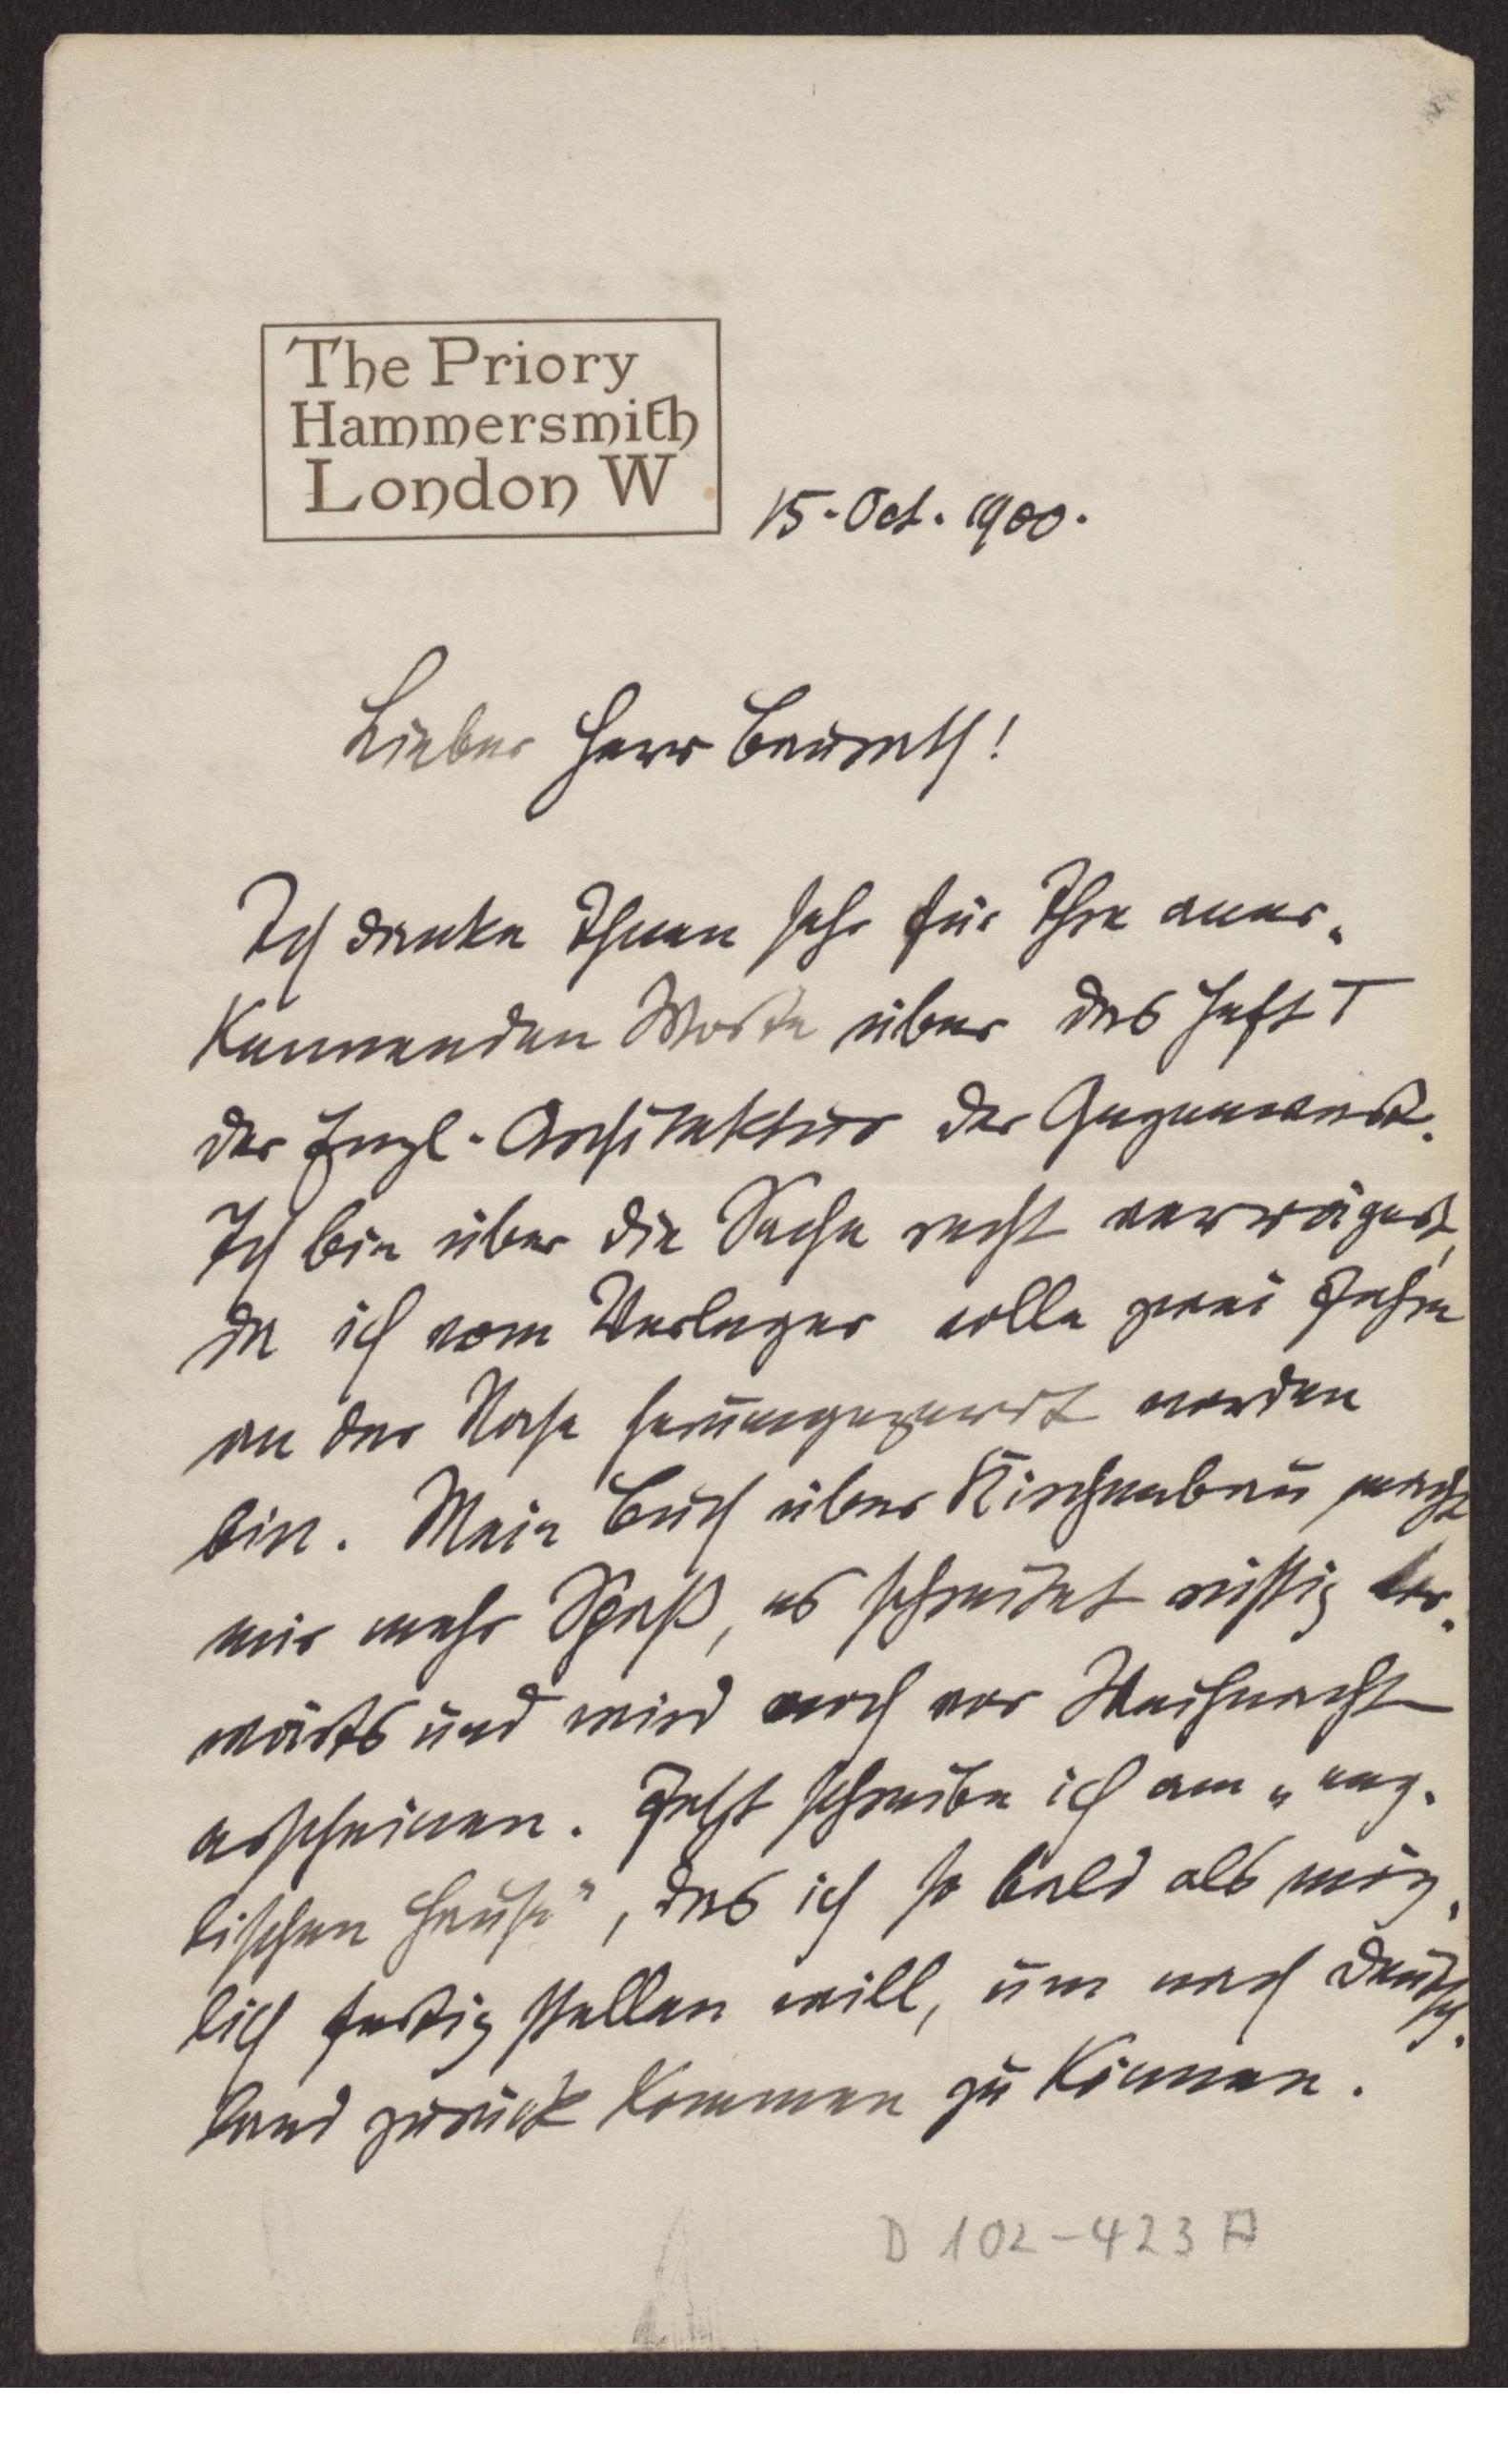 The Priory
Hammersmith
London W
15. Oct. 1900.
Lieber Herr Baurath!
Ich danke Ihnen sehr für Ihre aner-
kennenden Worte über das Heft I
der Engl. Architektur der Gegenwart.
Ich bin über die Sache recht verärgert,
da ich vom Verleger volle zwei Jahre
an der Nase herumgezerrt worden
bin. Mein Buch über Kirchenbau macht
mir mehr Spaß, es schreitet rüstig vor-
wärts und wird noch vor Weihnacht
erscheinen. Jetzt schreibe ich am „eng-
lischen Hause", das ich so bald als mög-
lich fertig stellen will, um nach Deutsch-
land zurück kommen zu können.
D 102-423 A